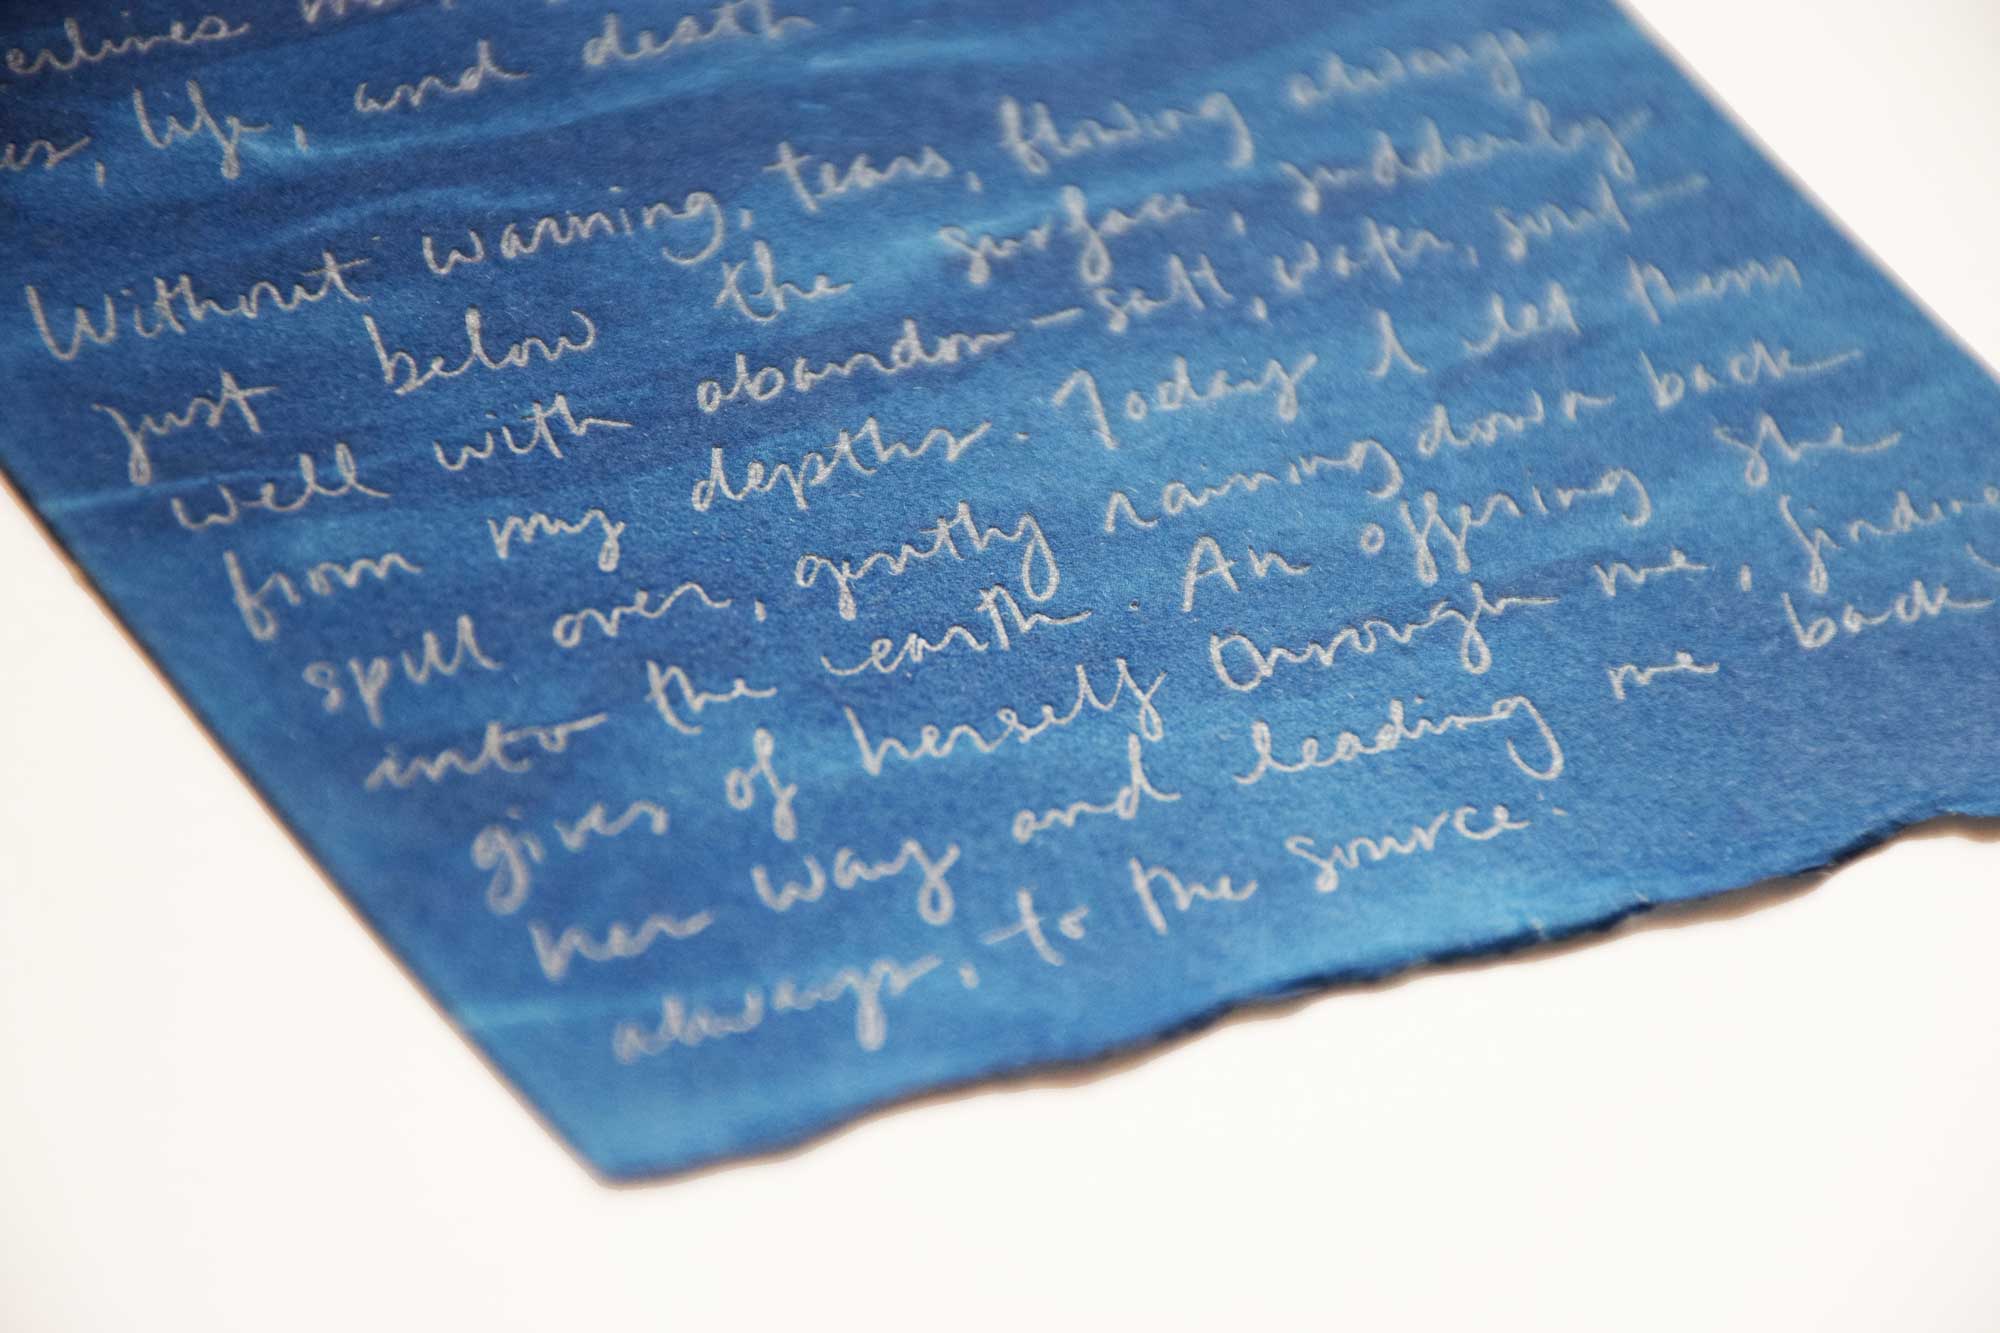 life, and death.
Without warning, tears, flowing always
just below the surface, suddenly
well with abandon—salt, water, sound—
from my depths. Today I let them
spill over, gently raining down back
into the earth. An offering she
gives of herself through me, finding
her way and leading me back,
always, to the source.